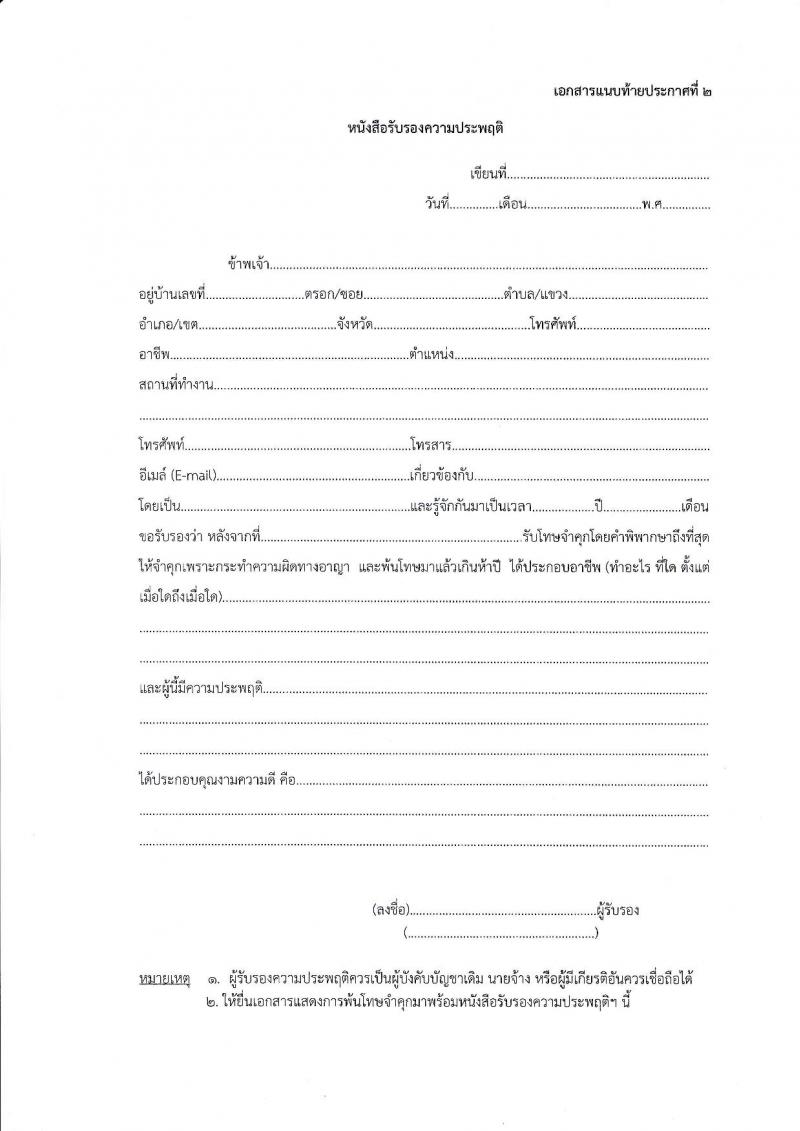 เอกสารแนบท้ายประกาศที่ ๒
หนังสือรับรองความประพฤติ
เขียนที่..............................................................
วันที่...............เดือน...................................พ.ศ...............
ข้าพเจ้า.......................................................................................................................................
อยู่บ้านเลขที่...............................ตรอก/ซอย...........................................ตำบล/แขวง...........................................
อำเภอ/เขต..........................................จังหวัด................................................โทรศัพท์.........................................
อาชีพ.........................................................................ตำแหน่ง..............................................................................
สถานที่ทำงาน........................................................................................................................................................
..............................................................................................................................................................................
โทรศัพท์.....................................................................โทรสาร...............................................................................
อีเมล์ (E-mail)...........................................................เกี่ยวข้องกับ........................................................................
โดยเป็น......................................................................และรู้จักกันมาเป็นเวลา...................ปี........................เดือน
ขอรับรองว่า หลังจากที่................................................................................รับโทษจำคุกโดยคำพิพากษาถึงที่สุด
ให้จำคุกเพราะกระทำความผิดทางอาญา และพ้นโทษมาแล้วเกินห้าปี ได้ประกอบอาชีพ (ทำอะไร ที่ใด ตั้งแต่
เมื่อใดถึงเมื่อใด).....................................................................................................................................................
..............................................................................................................................................................................
..............................................................................................................................................................................
และผู้นี้มีความประพฤติ.........................................................................................................................................
..............................................................................................................................................................................
..............................................................................................................................................................................
ได้ประกอบคุณงามความดี คือ...............................................................................................................................
..............................................................................................................................................................................
..............................................................................................................................................................................
(ลงชื่อ).........................................................ผู้รับรอง
(.........................................................)
หมายเหตุ ๑. ผู้รับรองความประพฤติควรเป็นผู้บังคับบัญชาเดิม นายจ้าง หรือผู้มีเกียรติอันควรเชื่อถือได้
๒. ให้ยื่นเอกสารแสดงการพ้นโทษจำคุกมาพร้อมหนังสือรับรองความประพฤติฯ นี้